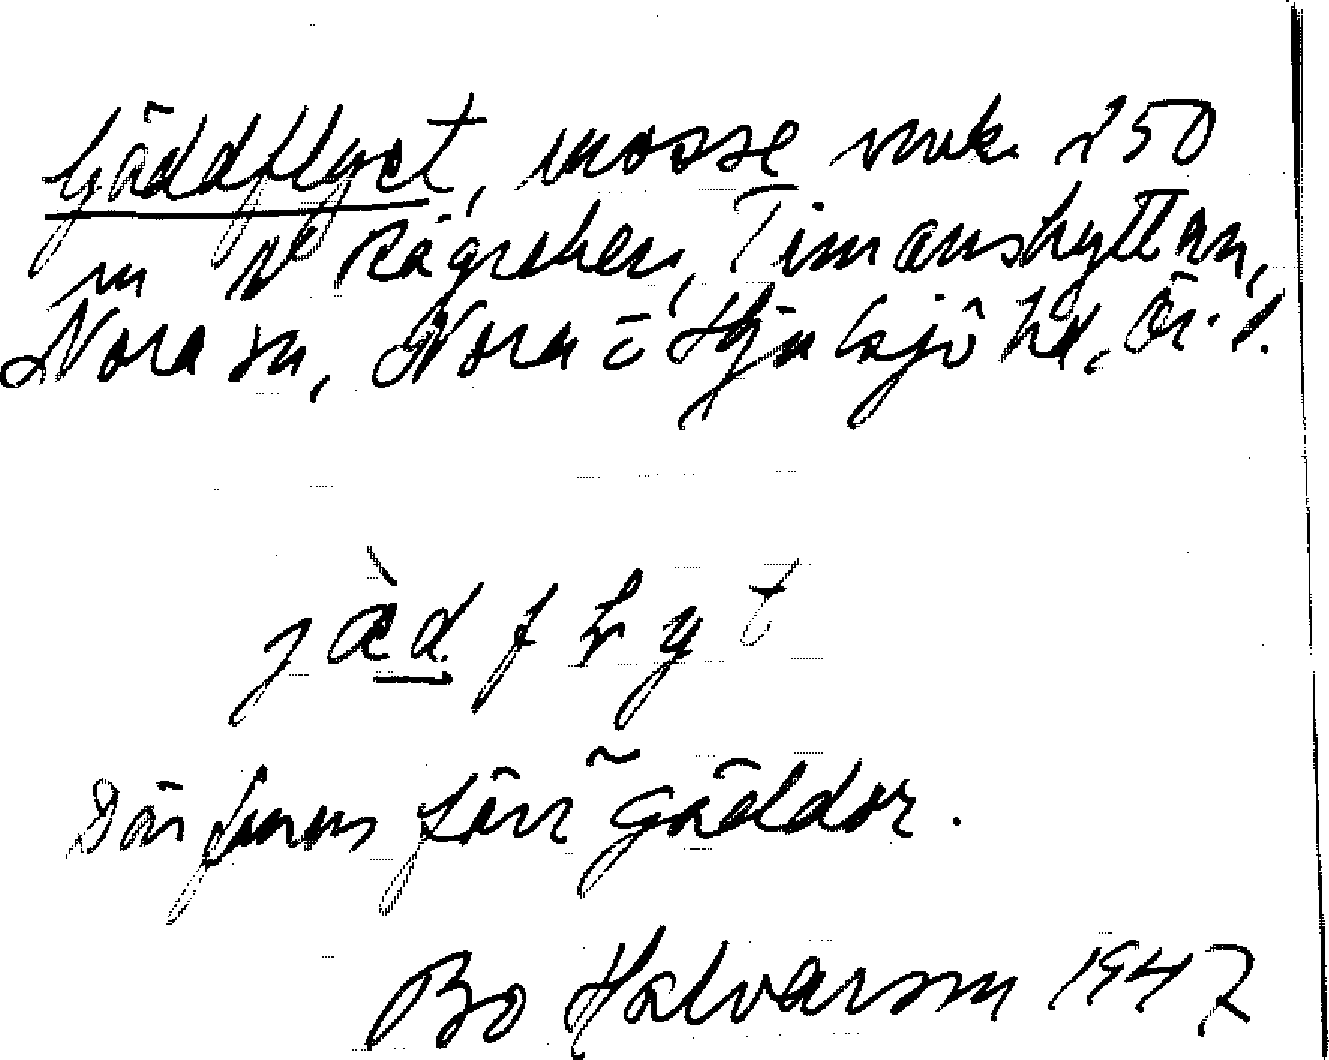 Gäddflyet, mosse omk. 250
m N Rågreken, Timanshyttan,
Nora sn, Nora o Hjulsjö hd, Ör. l.
j ä d f l y t
Där fanns förr gäddor.
Bo Halvarson 1947